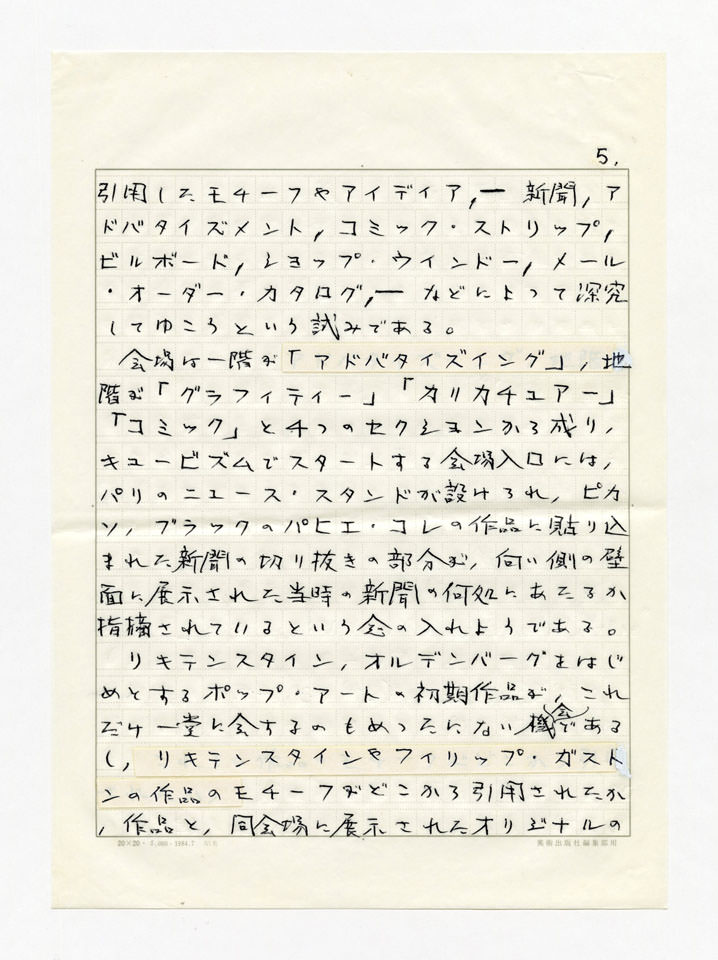 5.
引用したモチーフやアイディア,ー 新聞,ア
ドバタイズメント,コミック・ストリップ,
ビルボード,ショップ・ウインドー,メール
・オーダー・カタログ,ー などによって深究
してゆこうという試みである。
会場は一階が「アドバタイズイング」,地
階が「グラフィティー」「カリカチュアー」
「コミック」と4つのセクションから成り,
キュービズムでスタートする会場入口には,
パリのニュース・スタンドが設けられ,ピカ
ソ,ブラックのパピエ・コレの作品に貼り込
まれた新聞の切り抜きの部分が,向い側の壁
面に展示された当時の新聞の何処にあたるか
指摘されているという念の入れようである。
リキテンスタイン,オルデンバーグをはじ
めとするポップ・アートの初期作品が,これ
だけ一堂に会するのもめったにない機会である
し,リキテンスタインやフィリップ・ガスト
ンの作品のモチーフがどこから引用されたか
,作品と,同会場に展示されたオリジナルの
20×20・5,000-1984.7
美術出版社編集部用